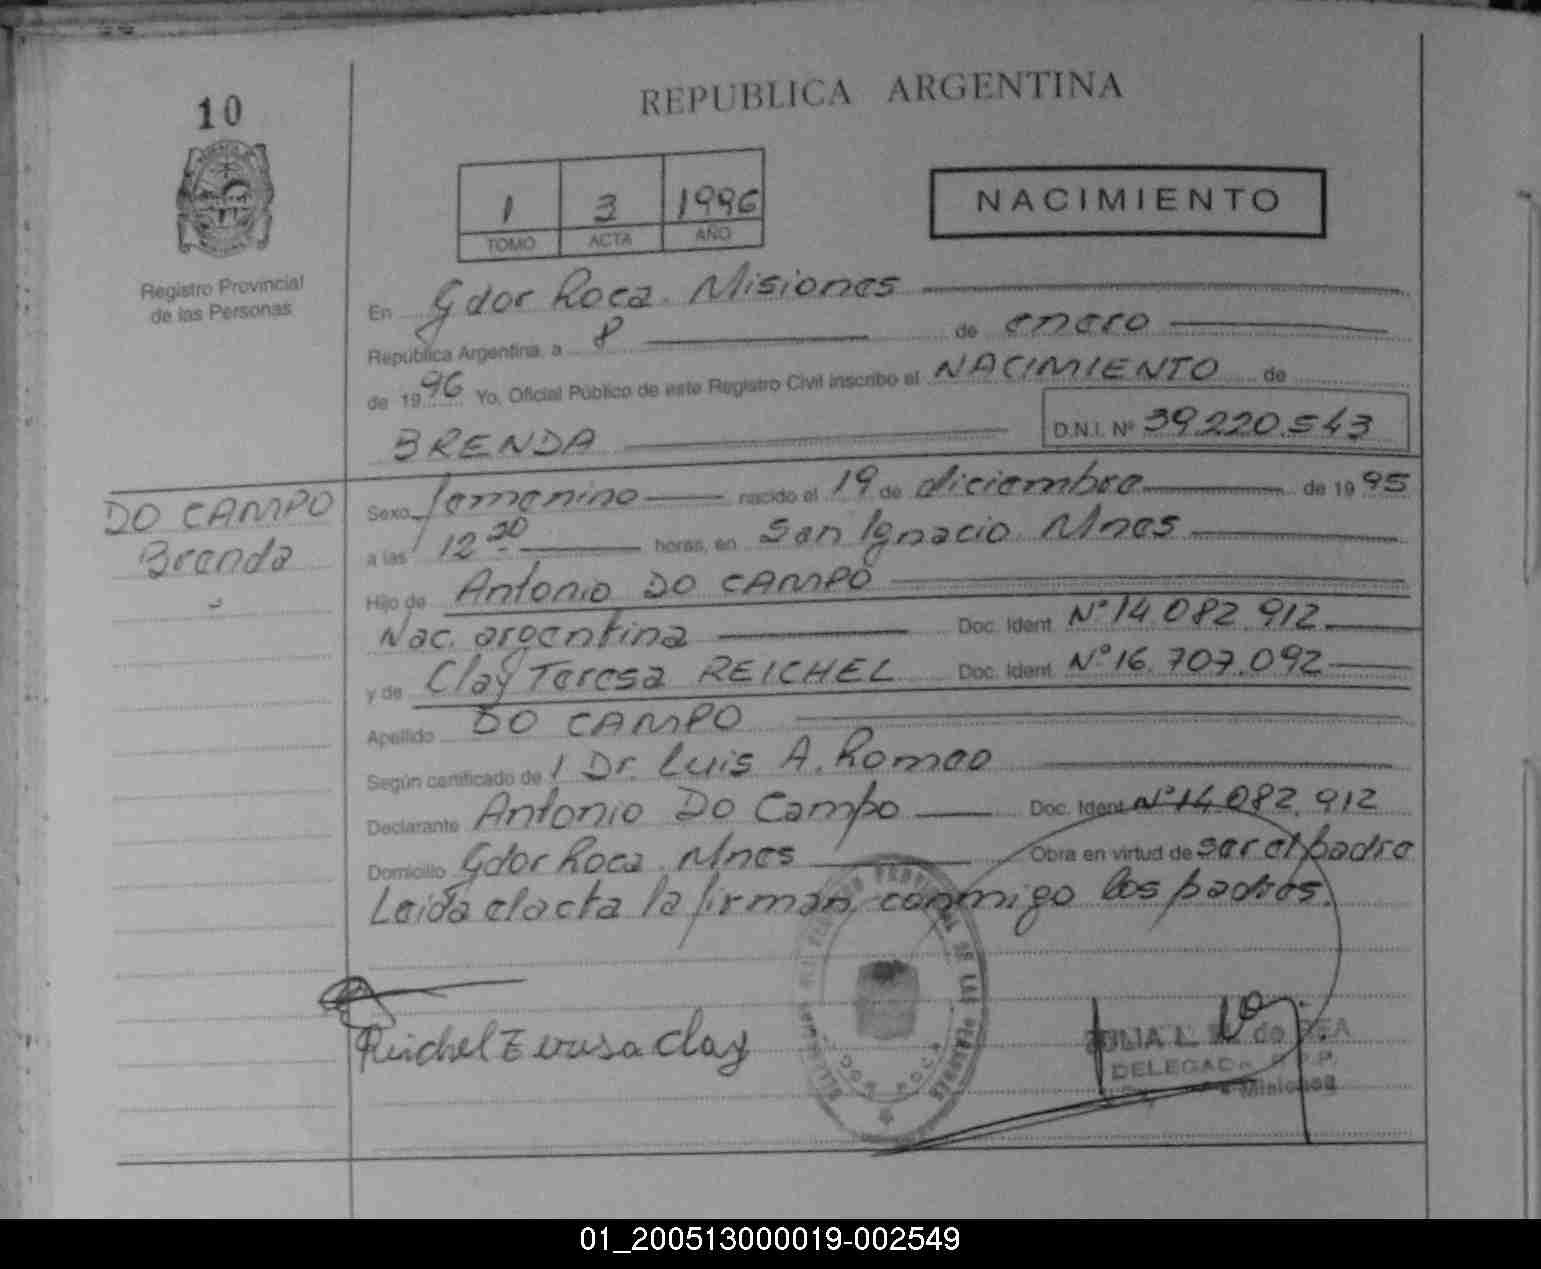 10
REPUBLICA ARGENTINA
1 3 1996
TOMO ACTA AÑO
NACIMIENTO
Registro Provincial
de las Personas
En Gdor Roca. Misiones
República Argentina, a 8 de enero
de 1996 Yo, Oficial Público de este Registro Civil inscribo el NACIMIENTO de
BRENDA D.N.I. Nº 39.220.543
DO CAMPO
Brenda
Sexo femenino nacido el 19 de diciembre de 1995
a las 12 30 horas, en San Ignacio. Mnes
Hijo de Antonio DO CAMPO
Nac. argentina Doc. Ident. Nº 14.082.912
y de Clay Teresa REICHEL Doc. Ident. Nº 16.707.092
Apellido DO CAMPO
Según certificado de Dr. Luis A. Romeo
Declarante Antonio Do Campo Doc. Ident. Nº 14.082.912
Domicilio Gdor Roca. Mnes Obra en virtud de ser el padre
Leida el acta la firman conmigo los padres.
Reichel Teresa Clay
DE LAS PERSONAS
GOB. ROCA
DELEGADA R.P.P.
Misiones
01_200513000019-002549